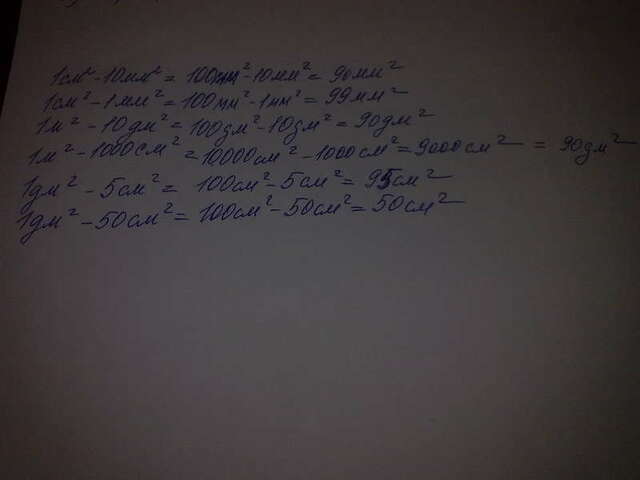 1см² - 10мм² = 100мм² - 10мм² = 90мм²
1см² - 1мм² = 100мм² - 1мм² = 99мм²
1м² - 10дм² = 100дм² - 10дм² = 90дм²
1м² - 1000см² = 10000см² - 1000см² = 9000см² = 90дм²
1дм² - 5см² = 100см² - 5см² = 95см²
1дм² - 50см² = 100см² - 50см² = 50см²